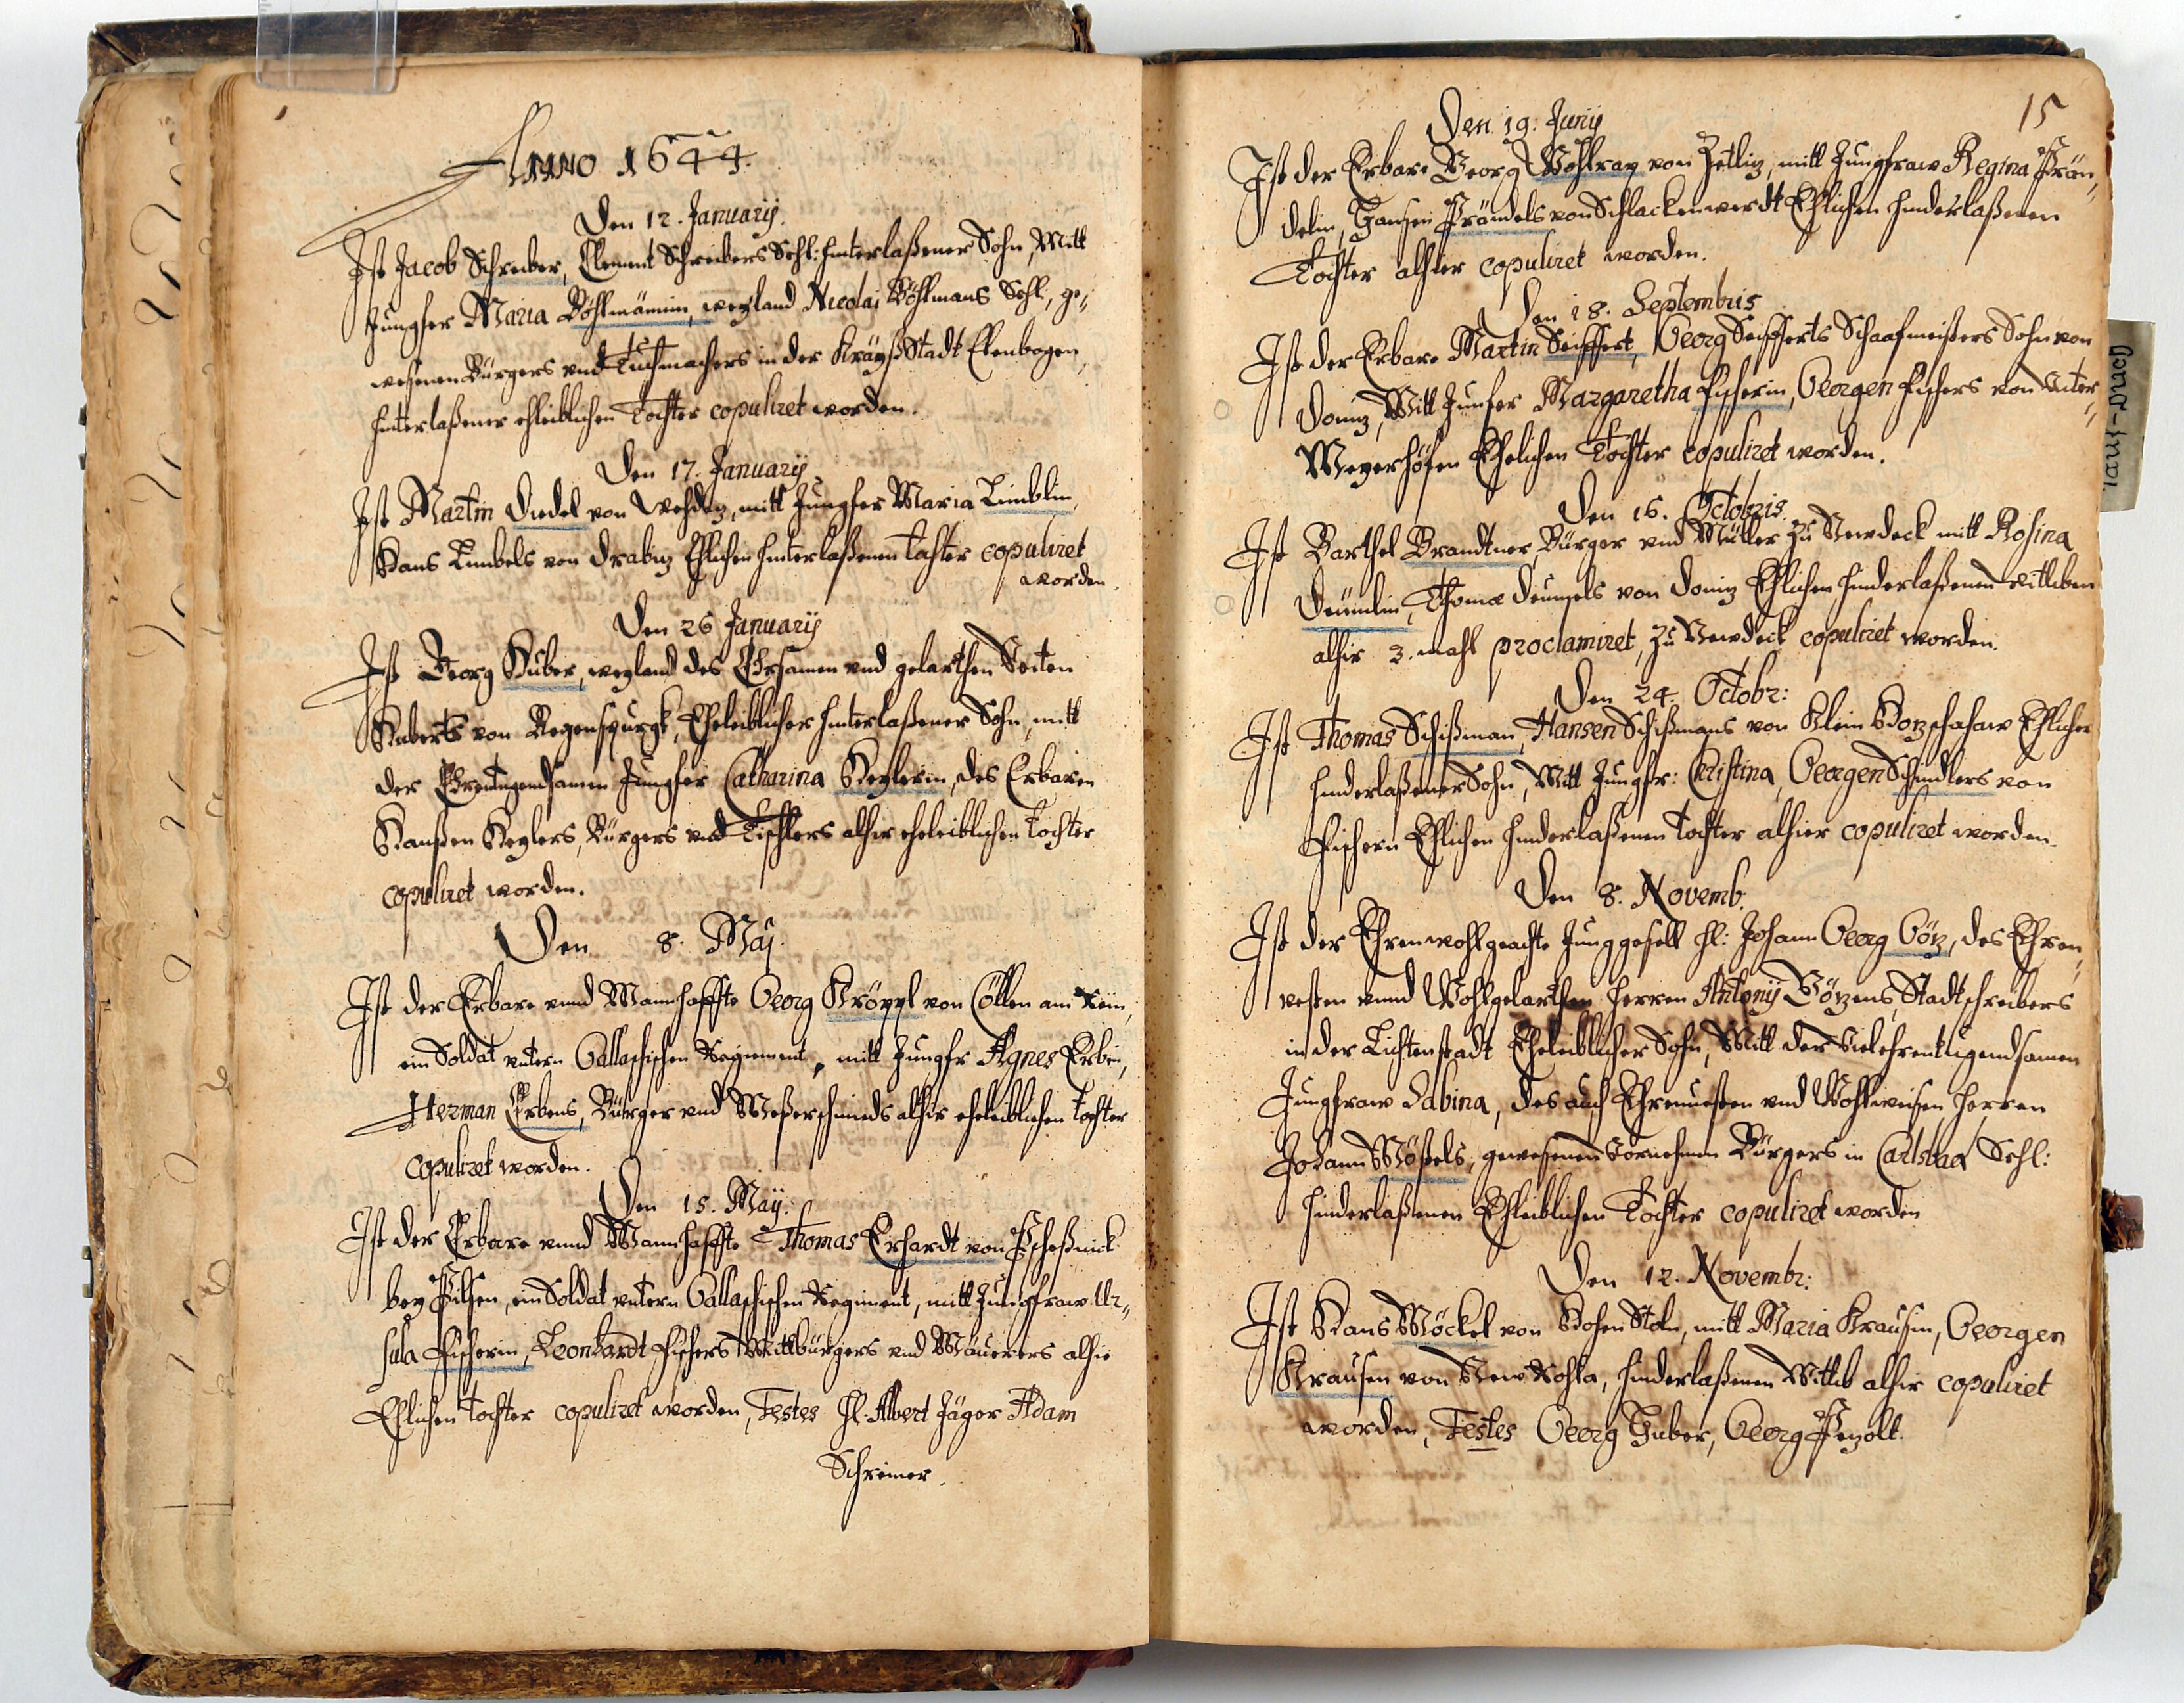 Anno 1644.
Den 12. Januarij.
Ist Jacob Schreiber, Clement Schreibers Sehl: hinterlaßener Sohn, Mitt
Jungfer Maria Böhlmännin, weyland Nicolai Böhlmans Sehl, ge-
wesenen Bürgers und Tuchmachers in der Kräyß Stadt Elenbogen,
hinterlaßener ehleiblichen Tochter copuliret worden.
Den 17. Januarij
Ist Martin Diedel von, mitt Jungfer Maria Limblin,
Hans Limbels von Drabiz Ehlichen hinterlaßenen tochter copuliret
worden.
Den 26 Januarij
Ist Georg Huber, weyland des Ehrsamen und gelarthen Veiten
Huberts von Regenspurgk, Eheleiblicher hinterlaßener Sohn, mitt
der Ehrentugendsamen Jungfer Catharina Keylerin, des Erbaren
Hanßen Keylers, Bürgers und Tischlers alhir eheleiblichen tochter
copuliret worden.
Den 8. Maij.
Ist der Erbare unnd Mannhaffte Georg Kröppl von Cöllen am Rein,
ein Soldat untern Gallasischen Regiement, mitt Jungfr Agnes Erbin,
Herman Erbens, Bürger und Meßerschmieds alhir eheleiblichen tochter
copuliret worden.
Den 15. Maij.
Ist der Erbare unnd Mannhaffte Thomas Erhardt von
bey Pilsen, ein Soldat untern Gallasischen Regiment, mitt Jungfraw Ur-
sula Fischerin, Leonhardt Fischers Mittbürgers und Mäuerers alhie
Ehlichen tochter copuliret worden, Testes Hl. Albert Jäger Adam
Schreiner.
15
Den 19. Junij
Ist der Erbare Georg Wohlrap von Zetliz, mitt Jungfraw Regina Brän-
delin, Hansen Brändels von Schlackenwerdt Ehlichen hinderlaßenen
Tochter alhier copuliret worden.
Den 18. Septembris
Ist der Erbare Martin Seiffert, Georg Seifferts Schaafmeisters Sohn von
Doniz, Mitt Junfer Margaretha Fischerin, Georgen Fischers von Unter-
Meyerhöfen Ehelichen Tochter copuliret worden.
Den 16. Octobris.
Ist Barthel Brandtner, Bürger und Müller zu Newdeck mitt Rosina
Deümlin, Thomæ von Doniz Ehlichen hinderlaßenen wittiben
alhir 3. mahl proclamiret, zu Newdeck copuliret worden.
Den 24. Octobr:
Ist Thomas Schißman, Hansen Schißmans von Klein Ehlicher
hinderlaßener Sohn, Mitt Jungfr: Christina, Georgen Schindlers von
Fischern Ehlichen hinderlaßenen tochter alhier copuliret worden.
Den 8. Novemb:
Ist der Ehrenwohlgeachte Junggesell Hl: Johann Georg Göz, des Ehren-
vesten unnd Wohlgelarthen Herren Antonij Gözens, Stadtschreibers
in der Lichtenstadt Eheleiblicher Sohn, Mitt der Vielehrentugendsamen
Jungfraw Sabina, des auch Ehrenvesten und Wohlweisen Herren
Johann Mößels, gewesenen Vornehmen Bürgers in Carlsbad Sehl:
hinderlaßenen Ehleiblichen Tochter copuliret worden
Den 12. Novembr:
Ist Hans Möckel von Hohen Stoln, mitt Maria Krausin, Georgen
Krausen von New Rohla, hinderlaßenen Wittib alhir copuliret
worden, Testes Georg Huber, Georg Pezolt.